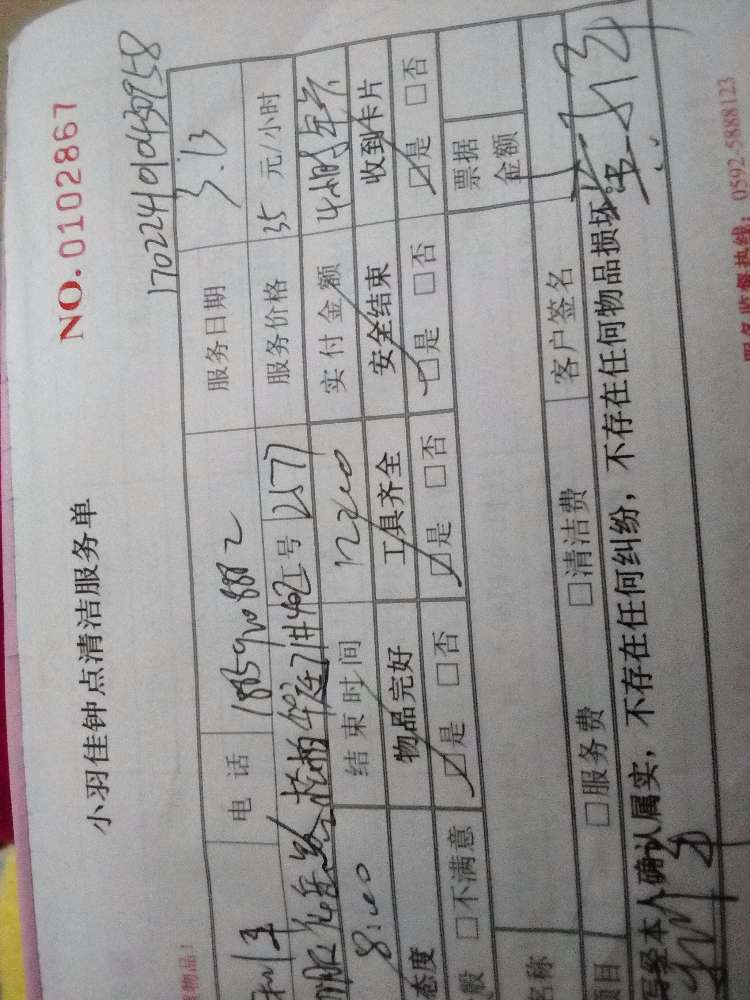 NO.0102867
小羽佳钟点清洁服务单
170224010430958
电话 服务日期 3.13
工号 2577 服务价格 35 元/小时
8:00 结束时间 12:00 实付金额 4小时年卡
态度 物品完好 工具齐全 安全结束 收到卡片
般 □不满意 ☑是 □否 ☑是 □否 ☑是 □否 ☑是 □否
名称 票据金额
项目 □服务费 □清洁费 客户签名
写经本人确认属实，不存在任何纠纷，不存在任何物品损坏
物品！
服务监督热线：0592-5888123